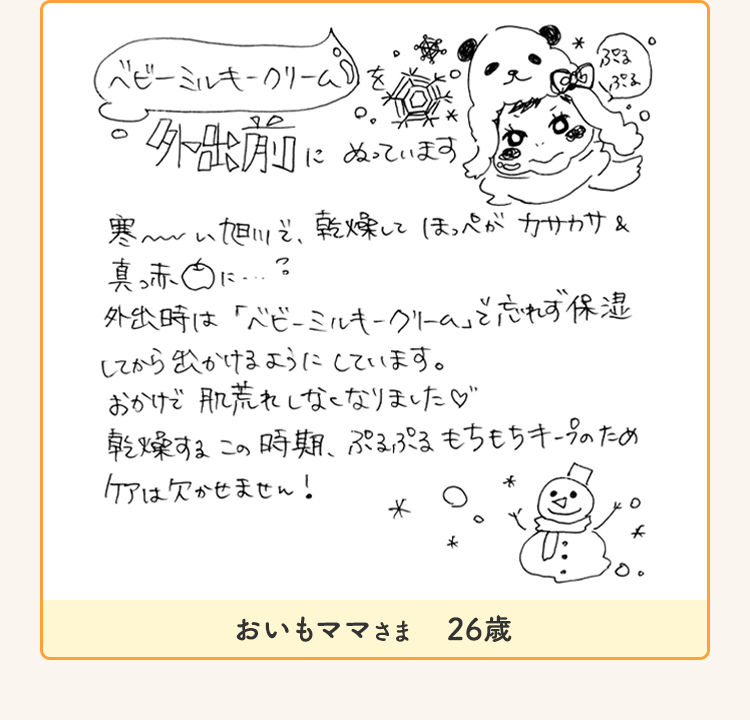 ベビーミルキークリームを
ぷる
ぷる
外出前に ぬっています
寒〜〜い旭川で、乾燥して ほっぺが カサカサ&
真っ赤に…?
外出時は「ベビーミルキークリーム」で忘れず保湿
してから出かけるようにしています。
おかけで 肌荒れしなくなりました♡
乾燥するこの時期、ぷるぷるもちもちキープのため
ケアは欠かせません!
おいもママさま 26歳